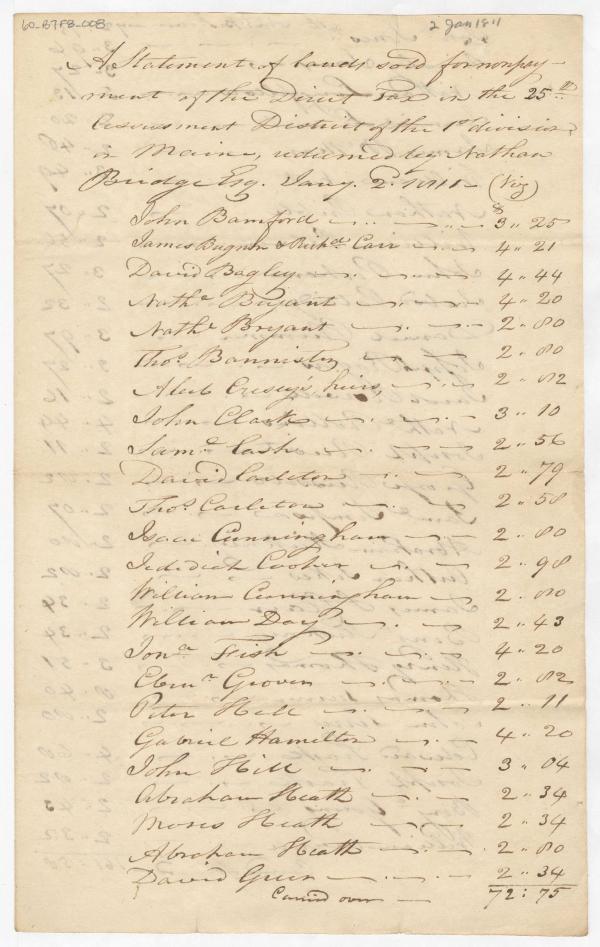 60-B7F8-008
2 Jan 1811
A Statement of lands sold for nonpay-
ment of the Direct Tax in the 25th
Assessment District of the 1st division
in Maine, redeemed by Nathan
Bridge Esq. Jany. 2d. 1811 - (Viz)
John Bamford $ 3 " 25
James & Richd. Carr 4 " 21
David Bagley 4 " 44
Nathl. Bryant 4 " 20
Nathl. Bryant 2 " 80
Thos. Bannister 2 " 80
Cresey's heirs, 2 " 82
John Clark 3 " 10
Saml. Cash 2 " 56
David Carleton 2 " 79
Thos. Carleton 2 " 58
Isaac Cunningham 2 " 80
Jedidiah 2 " 98
William Cunningham 2 " 80
William Day 2 " 43
Jona. Fish 4 " 20
Ebenr. Grover 2 " 82
Peter Hall 2 " 11
Gabriel Hamilton 4 " 20
John Hill 3 " 04
Abraham Heath 2 " 34
Moses Heath 2 " 34
Abraham Heath 2 " 80
David Green 2 " 34
Carried over 72 : 75